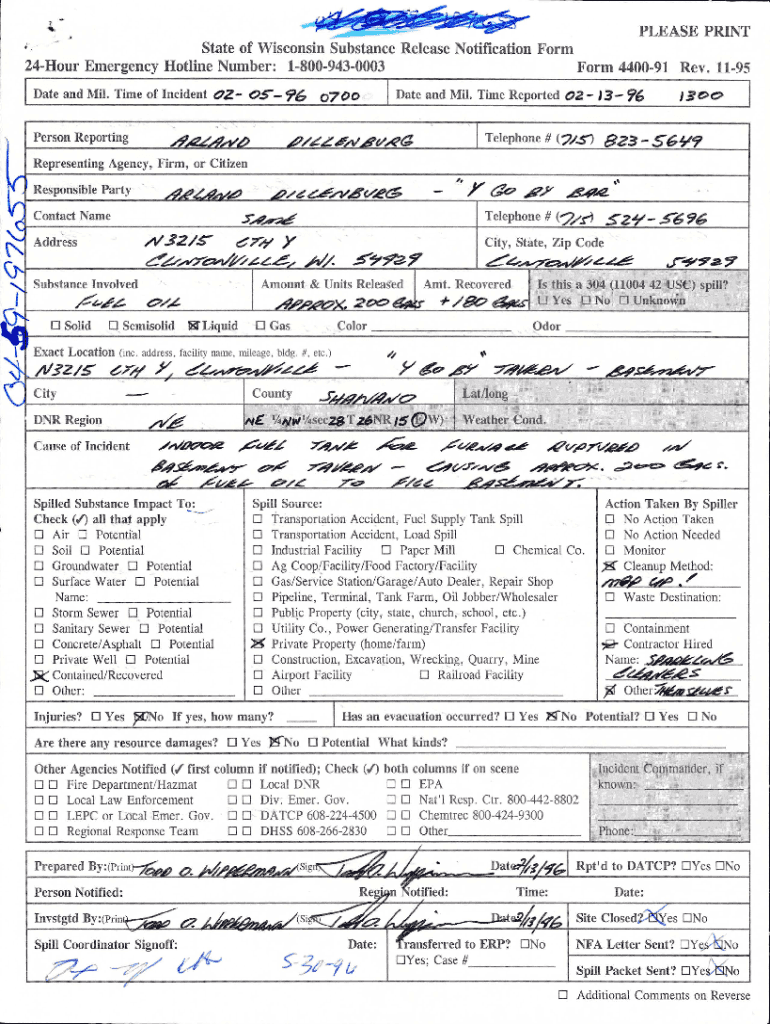 PLEASE PRINT
State of Wisconsin Substance Release Notification Form
24-Hour Emergency Hotline Number: 1-800-943-0003 Form 4400-91 Rev. 11-95
Date and Mil. Time of Incident 02-05-96 0700 Date and Mil. Time Reported 02-13-96 1300
Person Reporting ARLAND DILLENBURG Telephone # (715) 823-5649
Representing Agency, Firm, or Citizen
Responsible Party ARLAND DILLENBURG - "Y GO BY BAR"
Contact Name SAME Telephone # (715) 524-5696
Address N3215 CTH Y City, State, Zip Code
CLINTONVILLE, WI. 54929 CLINTONVILLE 54929
Substance Involved Amount & Units Released Amt. Recovered Is this a 304 (11004 42 USC) spill?
FUEL OIL APPROX. 200 GALS + 180 GALS ☐ Yes ☐ No ☐ Unknown
☐ Solid ☐ Semisolid ☒ Liquid ☐ Gas Color Odor
Exact Location (inc. address, facility name, mileage, bldg. #, etc.)
N3215 CTH Y, CLINTONVILLE - "Y GO BY" TAVERN - BASEMENT
City — County SHAWANO Lat/long
DNR Region NE NE ¼ NW ¼ sec 28 T 26 NR 15 (E) W) Weather Cond.
Cause of Incident INDOOR FUEL TANK FOR FURNACE RUPTURED IN
BASEMENT OF TAVERN - CAUSING APPROX. 200 GALS.
OF FUEL OIL TO FILL BASEMENT.
Spilled Substance Impact To: Spill Source: Action Taken By Spiller
Check (✓) all that apply ☐ Transportation Accident, Fuel Supply Tank Spill ☐ No Action Taken
☐ Air ☐ Potential ☐ Transportation Accident, Load Spill ☐ No Action Needed
☐ Soil ☐ Potential ☐ Industrial Facility ☐ Paper Mill ☐ Chemical Co. ☐ Monitor
☐ Groundwater ☐ Potential ☐ Ag Coop/Facility/Food Factory/Facility ☒ Cleanup Method:
☐ Surface Water ☐ Potential ☐ Gas/Service Station/Garage/Auto Dealer, Repair Shop MOP UP!
Name: ☐ Pipeline, Terminal, Tank Farm, Oil Jobber/Wholesaler ☐ Waste Destination:
☐ Storm Sewer ☐ Potential ☐ Public Property (city, state, church, school, etc.)
☐ Sanitary Sewer ☐ Potential ☐ Utility Co., Power Generating/Transfer Facility ☐ Containment
☐ Concrete/Asphalt ☐ Potential ☒ Private Property (home/farm) ☒ Contractor Hired
☐ Private Well ☐ Potential ☐ Construction, Excavation, Wrecking, Quarry, Mine Name: SPARKLING
☒ Contained/Recovered ☐ Airport Facility ☐ Railroad Facility CLEANERS
☐ Other: ☐ Other ☒ Other: THEMSELVES
Injuries? ☐ Yes ☒ No If yes, how many? Has an evacuation occurred? ☐ Yes ☒ No Potential? ☐ Yes ☐ No
Are there any resource damages? ☐ Yes ☒ No ☐ Potential What kinds?
Other Agencies Notified (✓ first column if notified); Check (✓) both columns if on scene Incident Commander, if
☐ ☐ Fire Department/Hazmat ☐ ☐ Local DNR ☐ ☐ EPA known:
☐ ☐ Local Law Enforcement ☐ ☐ Div. Emer. Gov. ☐ ☐ Nat'l Resp. Ctr. 800-442-8802
☐ ☐ LEPC or Local Emer. Gov. ☐ ☐ DATCP 608-224-4500 ☐ ☐ Chemtrec 800-424-9300
☐ ☐ Regional Response Team ☐ ☐ DHSS 608-266-2830 ☐ ☐ Other Phone:
Prepared By:(Print) TODD O. WIPPERMANN (Sign) Date: 2/13/96 Rpt'd to DATCP? ☐Yes ☐No
Person Notified: Region Notified: Time: Date:
Invstgtd By:(Print) TODD O. WIPPERMANN (Sign) Date: 2/13/96 Site Closed? ☒Yes ☐No
Spill Coordinator Signoff: Date: Transferred to ERP? ☐No NFA Letter Sent? ☐Yes ☒No
5-30-96 ☐Yes; Case # Spill Packet Sent? ☐Yes ☒No
☐ Additional Comments on Reverse
04-59-197655